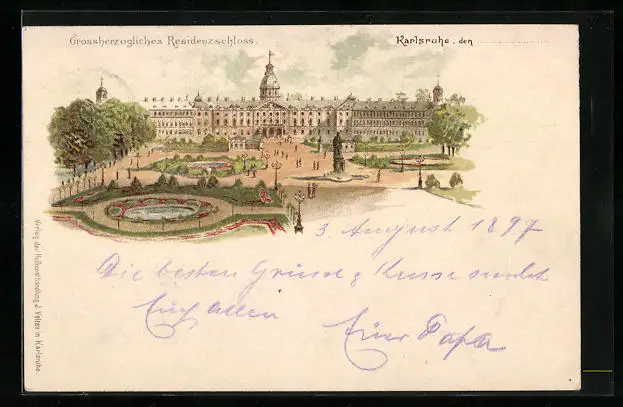 Grossherzogliches Residenzschloss.
Karlsruhe, den
3 August 1897
Die besten Grüsse & Küsse sendet
Euch allen
Euer Papa
Verlag der Hofkunsthandlung J. Velten in Karlsruhe.